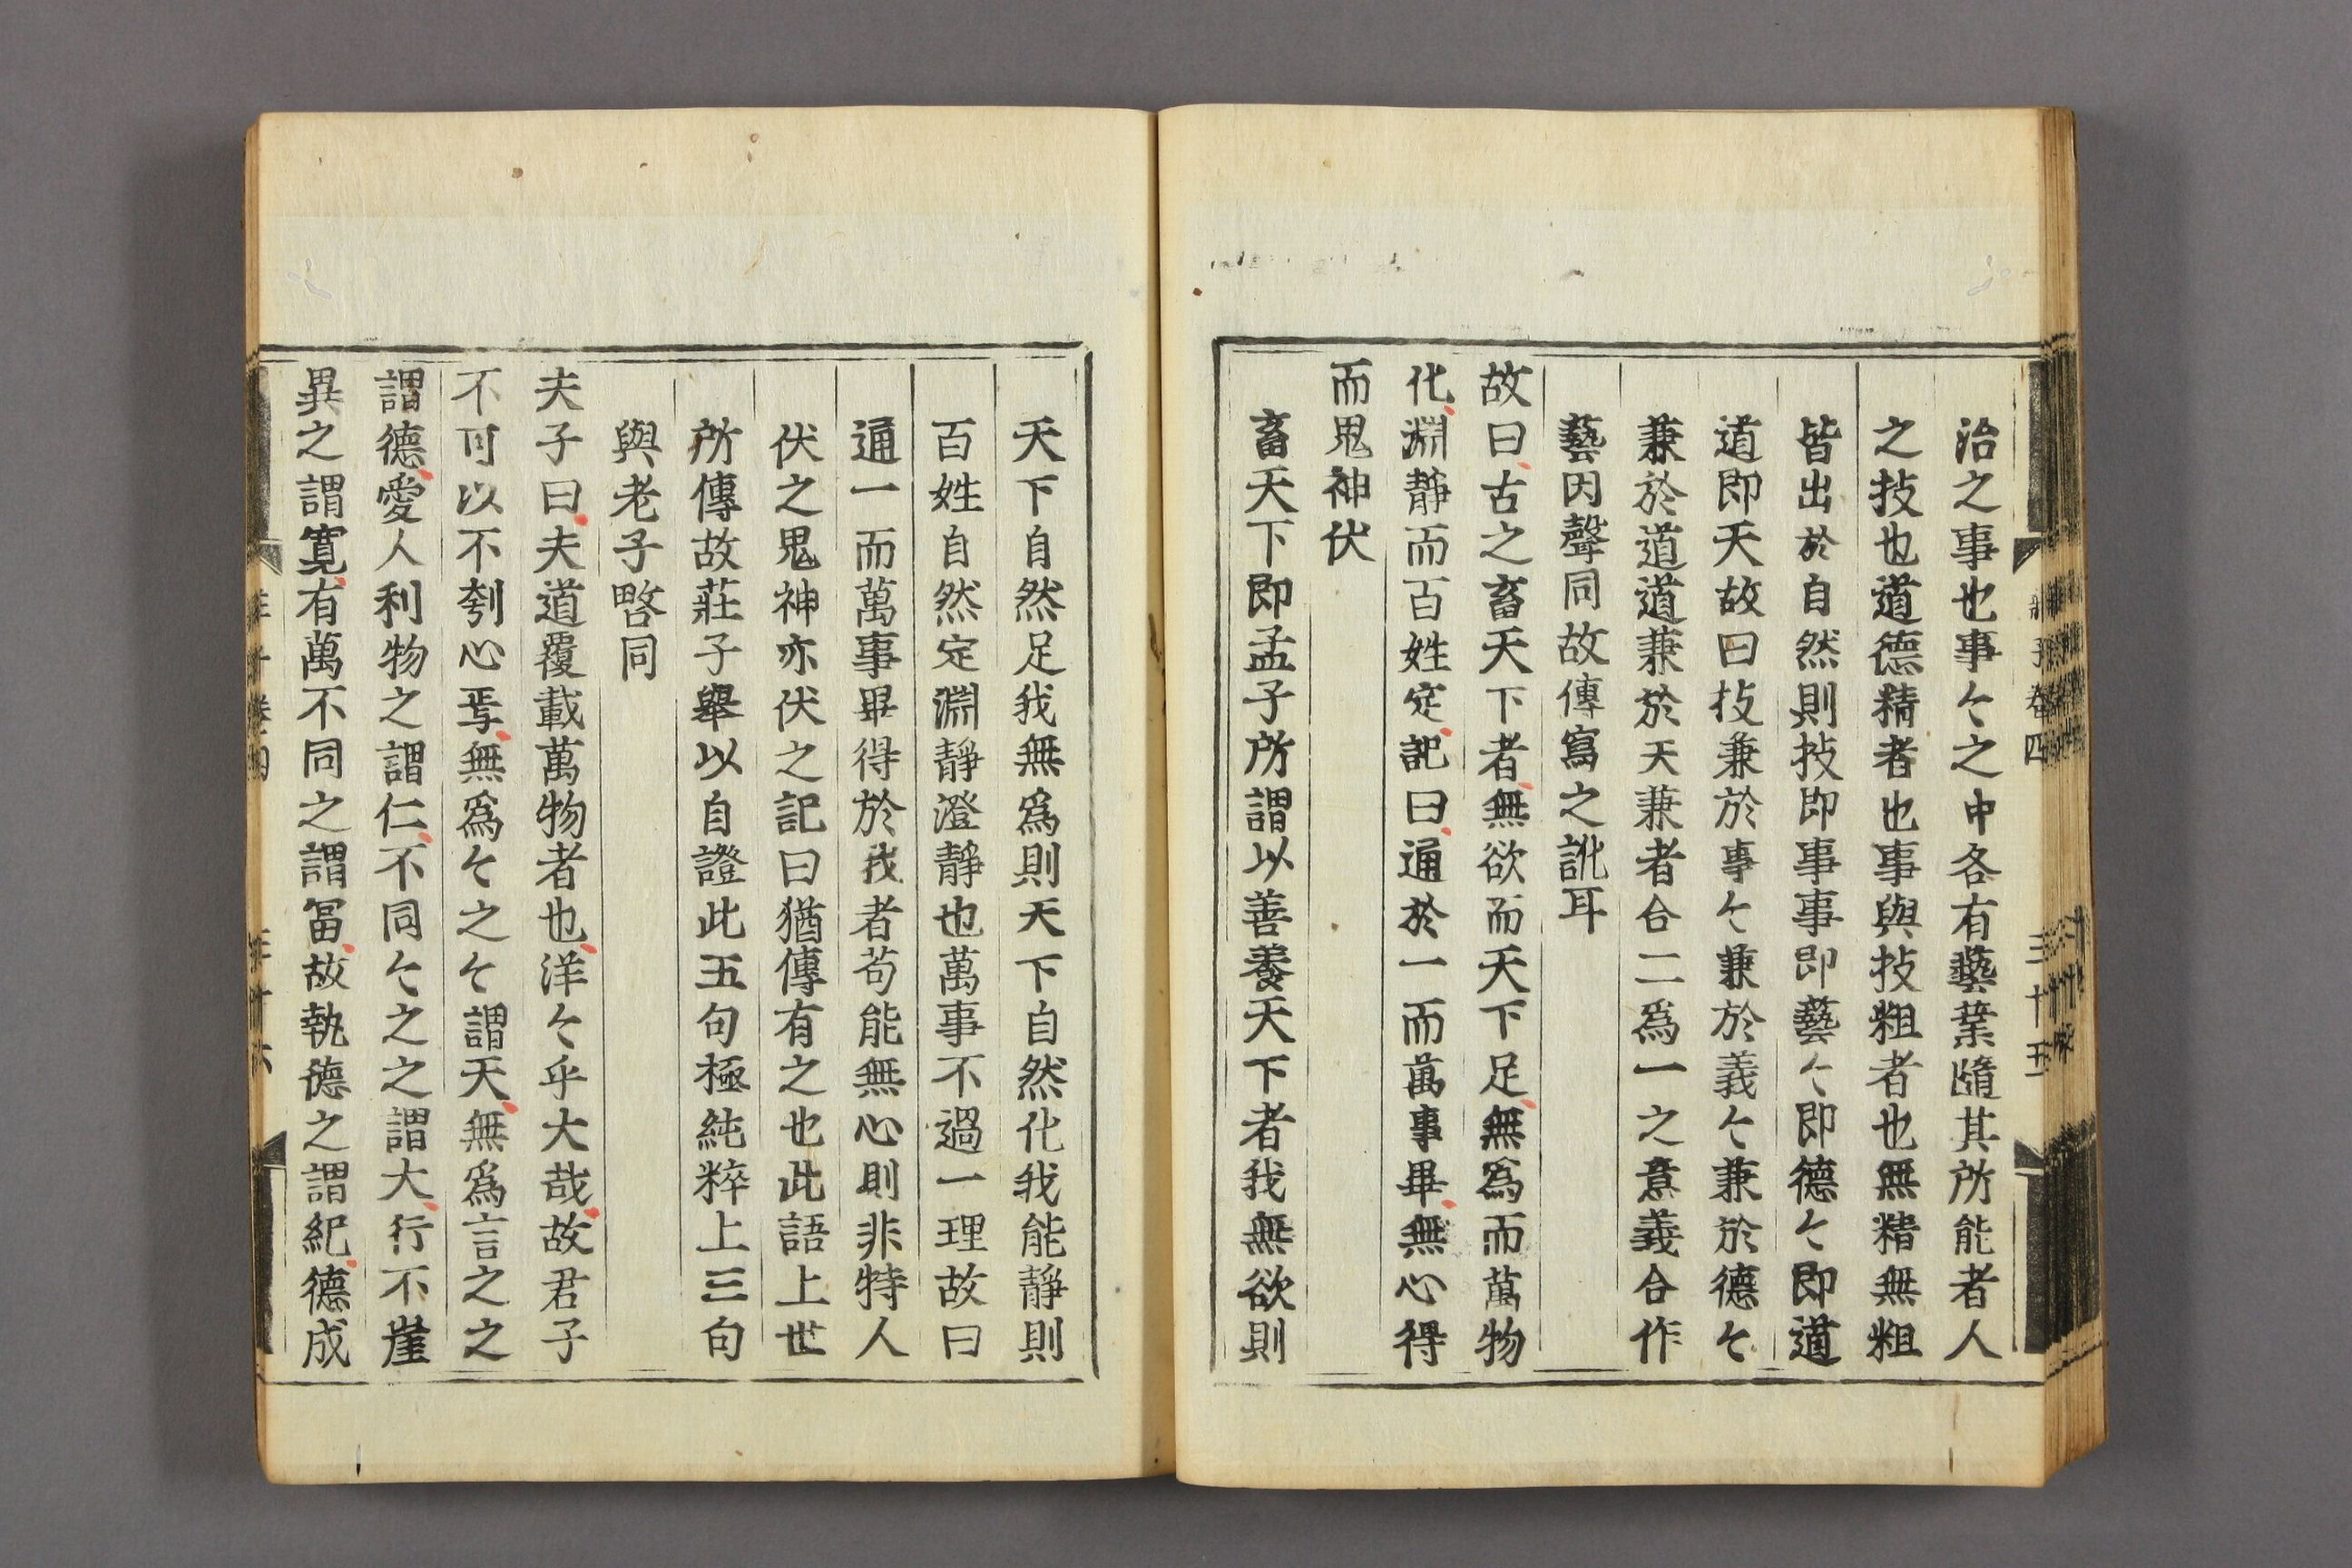 治之事也事〻之中各有藝業隨其所能者人
之技也道德精者也事與技粗者也無精無粗
皆出於自然則技即事事即藝〻即德〻即道
道即天故曰技兼於事〻兼於義〻兼於德〻
兼於道道兼於天兼者合二爲一之意義合作
藝因聲同故傳寫之訛耳
故曰古之畜天下者無欲而天下足無爲而萬物
化淵靜而百姓定記曰通於一而萬事畢無心得
而鬼神伏
畜天下即孟子所謂以善養天下者我無欲則
天下自然足我無爲則天下自然化我能靜則
百姓自然定淵靜澄靜也萬事不過一理故曰
通一而萬事畢得於我者苟能無心則非特人
伏之鬼神亦伏之記曰猶傳有之也此語上世
所傳故莊子舉以自證此五句極純粹上三句
與老子暋同
夫子曰夫道覆載萬物者也洋〻乎大哉故君子
不可以不刳心焉無爲〻之〻謂天無爲言之之
謂德愛人利物之謂仁不同〻之之謂大行不崖
異之謂寬有萬不同之謂冨故執德之謂紀德成
卷四
三十五